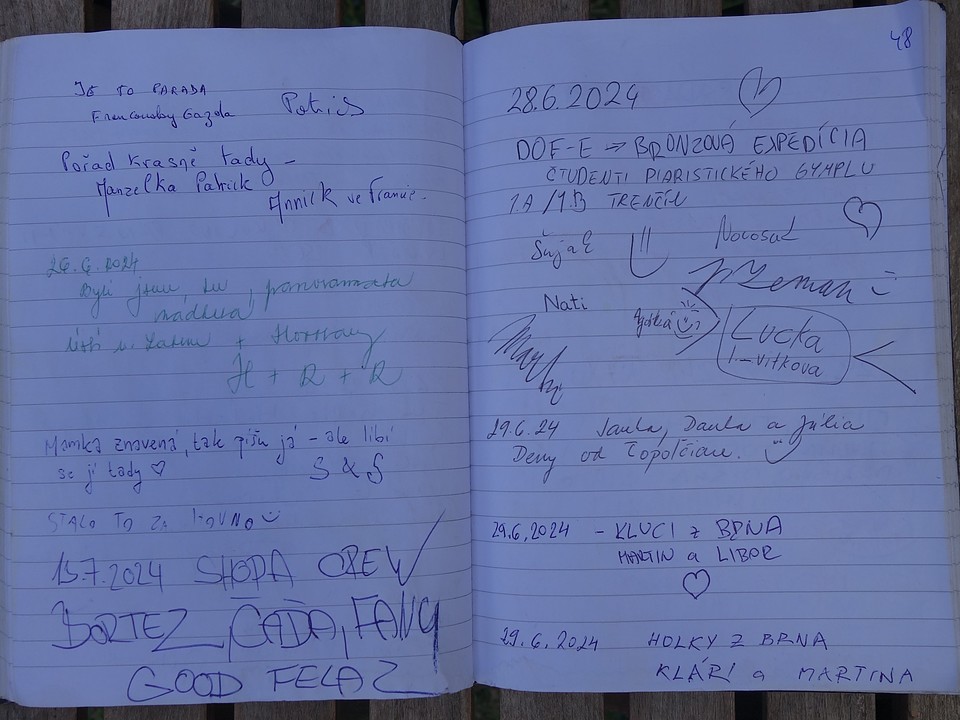 JE TO PARADA
Pořad krasně tady -
Manzelka Patrick
Annick ve Francie.
26.6.2024
Byli jsme tu, panoramata
nádherná
+
H + R + R
Mamka znavená, tak píšu já - ale líbí
se jí tady ♡
S & S
STÁLO TO ZA HOVNO
15.7.2024 SHODA CREW
BORTEZ, ČAĎA, FANY
GOOD FELAZ
48
28.6.2024
DOF-E → BRONZOVÁ EXPEDÍCIA
ČTUDENTI PIARISTICKÉHO GYMPLU
1A/1.B TRENČÍN
Novosad
Zeman
Nati
Lucka
Vitkova
29.6.24 a Júlia
Deny od Topolčian.
29.6.2024 - KLUCI z BRNA
MARTIN a LIBOR
♡
29.6.2024 HOLKY Z BRNA
KLÁRI a MARTINA